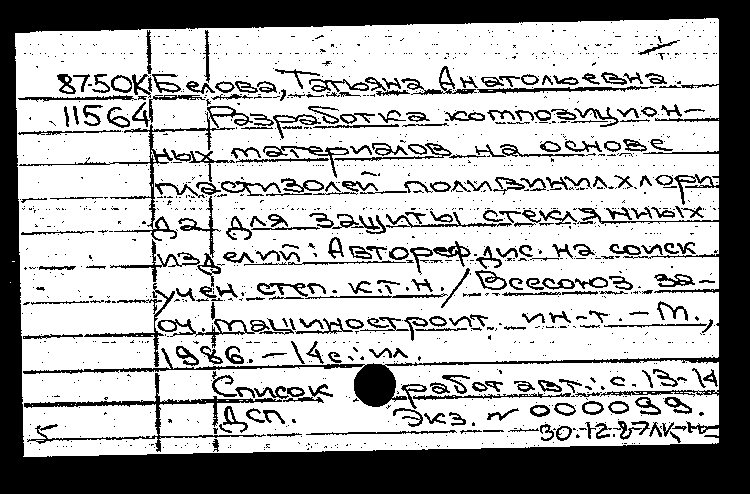 87-5ОК Белова, Татьяна Анатольевна.
11564 Разработка композицион-
ных материалов на основе
пластизолей поливинилхлори-
да для защиты стеклянных
изделий: Автореф. дис. на соиск.
учен. степ. к.т.н. / Всесоюз. за-
оч. машиностроит. ин-т. - М.,
1986. - 14 с.: ил.
Список работ авт.: с. 13-14
ДСП. Экз. N 000099.
5 30.12.87